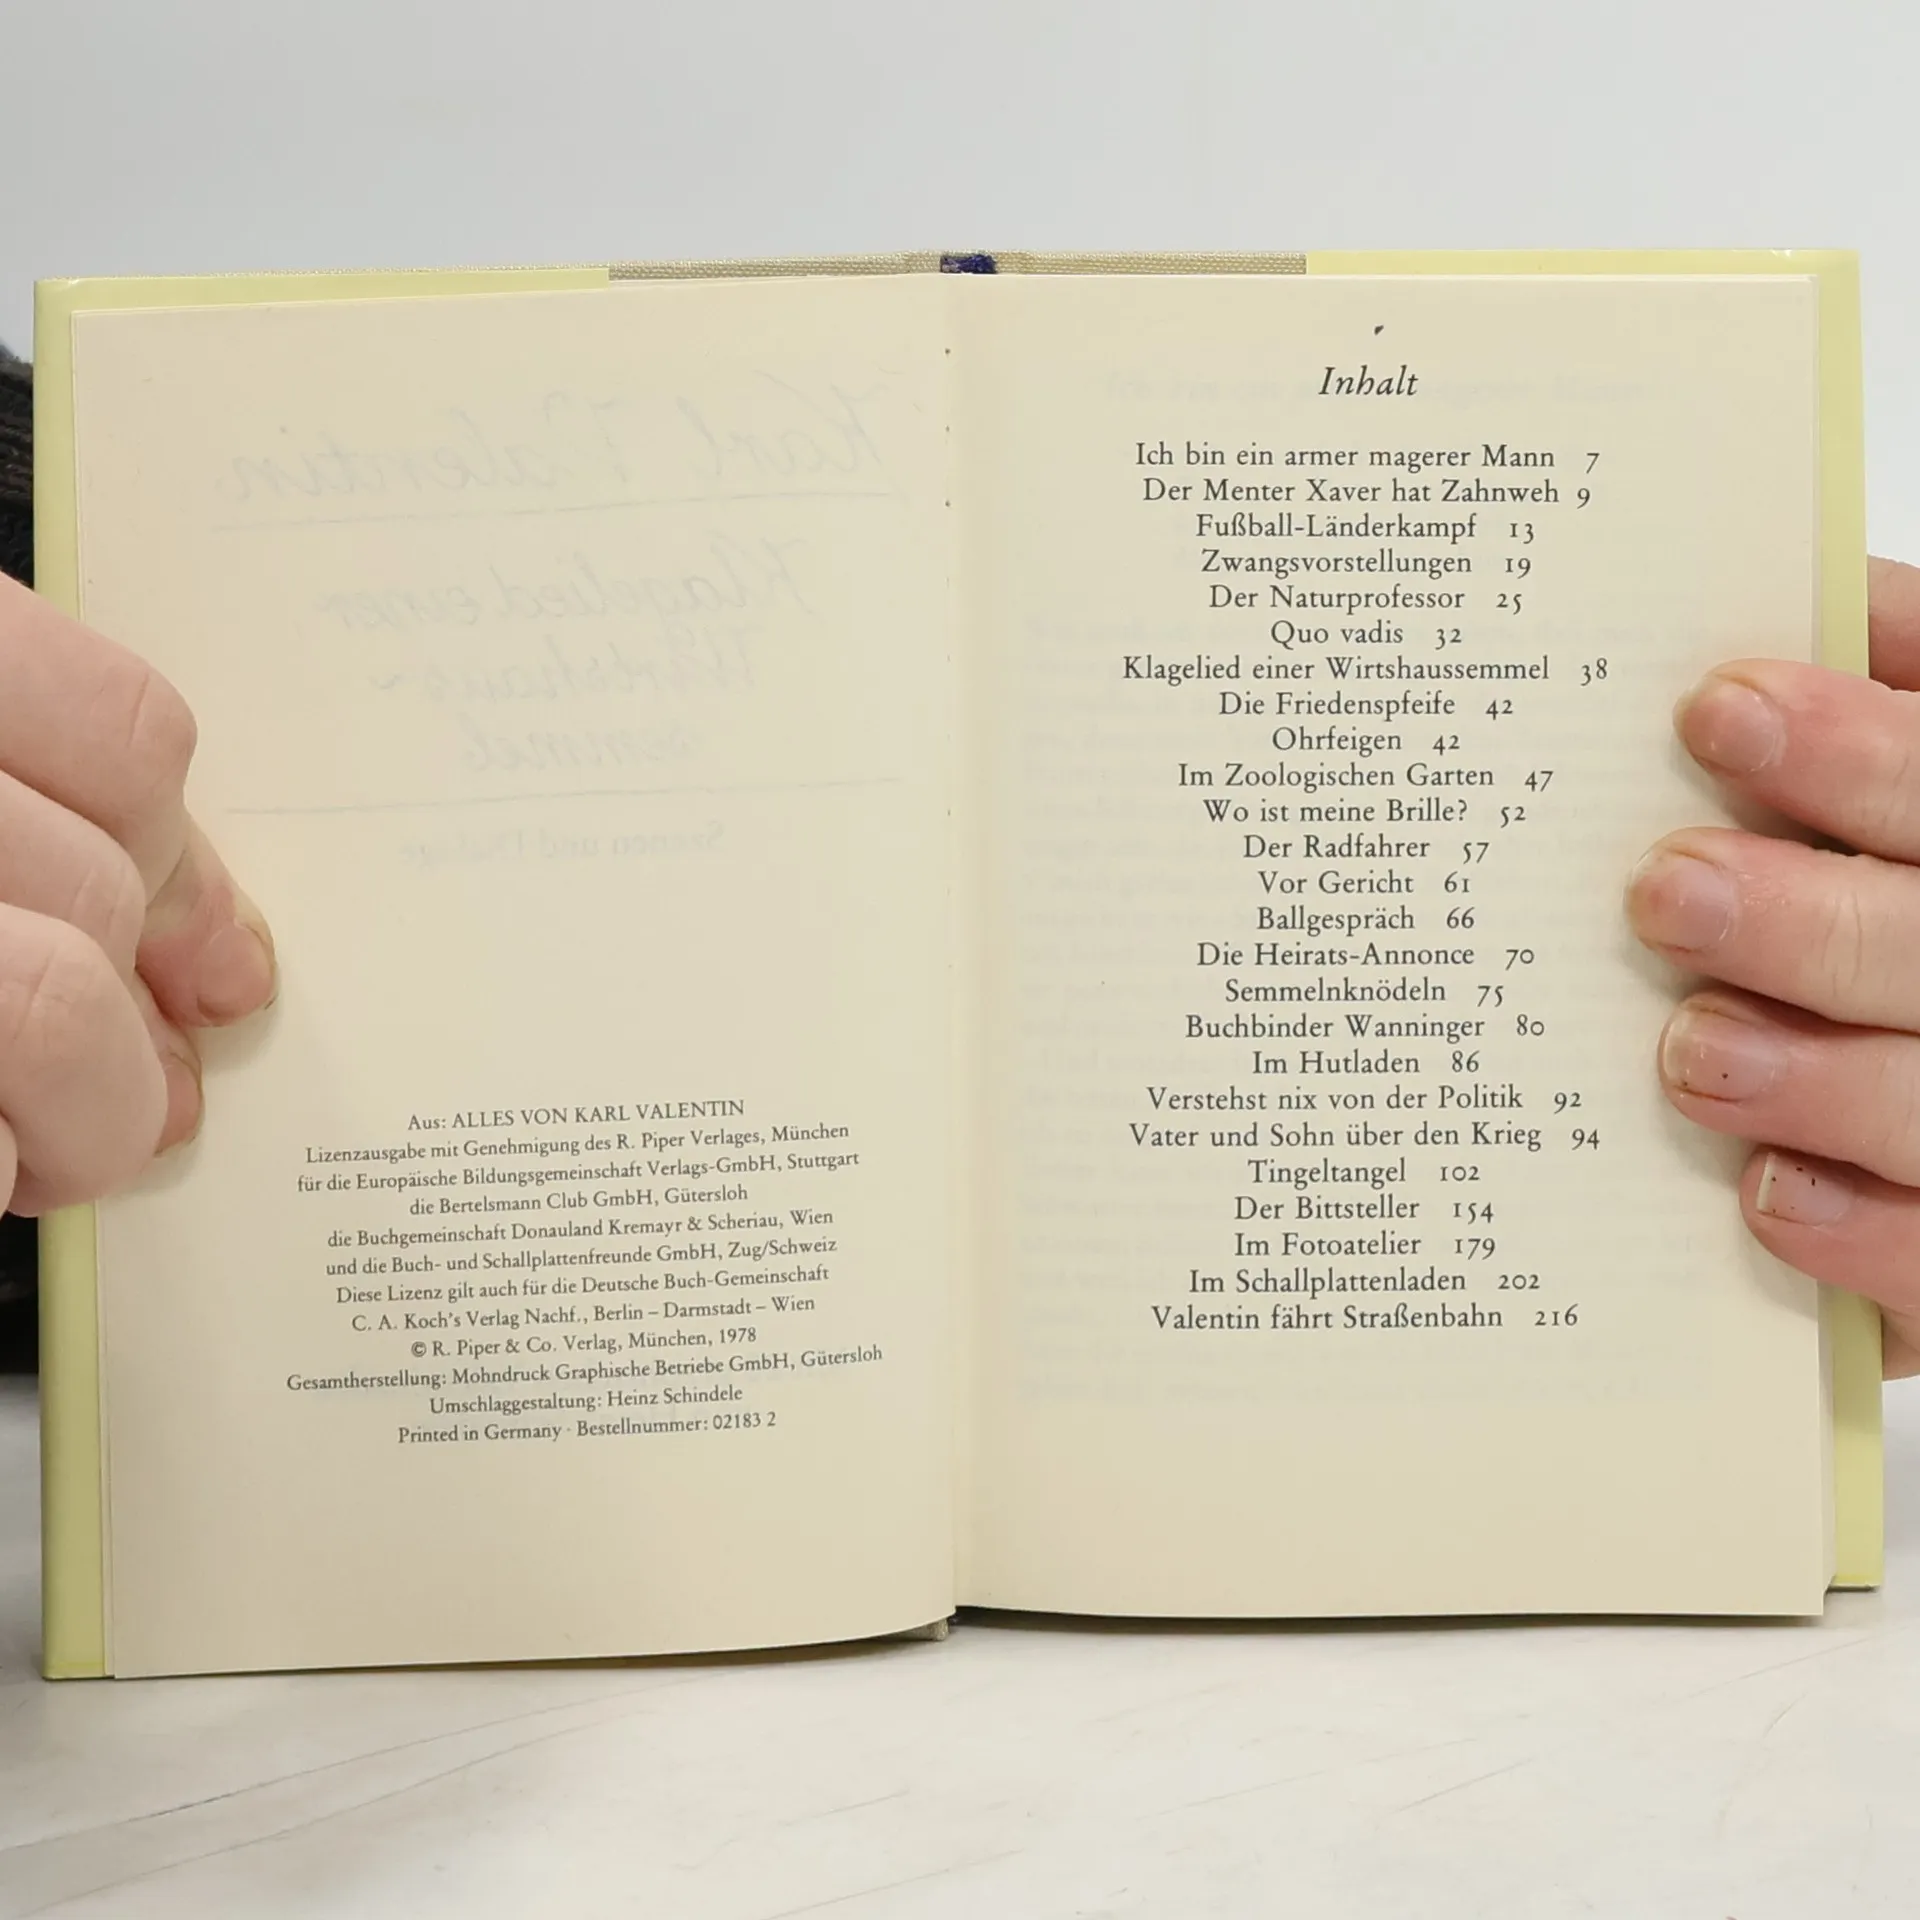 Aus: ALLES VON KARL VALENTIN
Lizenzausgabe mit Genehmigung des R. Piper Verlages, München
für die Europäische Bildungsgemeinschaft Verlags-GmbH, Stuttgart
die Bertelsmann Club GmbH, Gütersloh
die Buchgemeinschaft Donauland Kremayr & Scheriau, Wien
und die Buch- und Schallplattenfreunde GmbH, Zug/Schweiz
Diese Lizenz gilt auch für die Deutsche Buch-Gemeinschaft
C. A. Koch's Verlag Nachf., Berlin – Darmstadt – Wien
© R. Piper & Co. Verlag, München, 1978
Gesamtherstellung: Mohndruck Graphische Betriebe GmbH, Gütersloh
Umschlaggestaltung: Heinz Schindele
Printed in Germany · Bestellnummer: 02183 2
Inhalt
Ich bin ein armer magerer Mann 7
Der Menter Xaver hat Zahnweh 9
Fußball-Länderkampf 13
Zwangsvorstellungen 19
Der Naturprofessor 25
Quo vadis 32
Klagelied einer Wirtshaussemmel 38
Die Friedenspfeife 42
Ohrfeigen 42
Im Zoologischen Garten 47
Wo ist meine Brille? 52
Der Radfahrer 57
Vor Gericht 61
Ballgespräch 66
Die Heirats-Annonce 70
Semmelnknödeln 75
Buchbinder Wanninger 80
Im Hutladen 86
Verstehst nix von der Politik 92
Vater und Sohn über den Krieg 94
Tingeltangel 102
Der Bittsteller 154
Im Fotoatelier 179
Im Schallplattenladen 202
Valentin fährt Straßenbahn 216